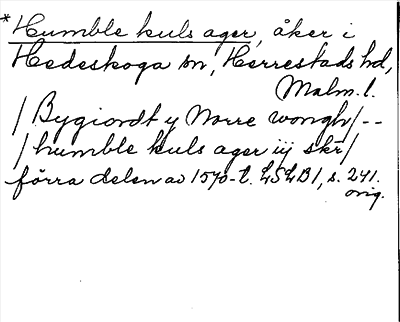 *Humble kuls ager, åker i
Hedeskoga sn, Herrestads hd,
Malm.l.
/Bygiordt y Norre wongh/--
/humble kuls ager iij skr/
förra delen av 1570-t. LSLB1, s. 241.
orig.